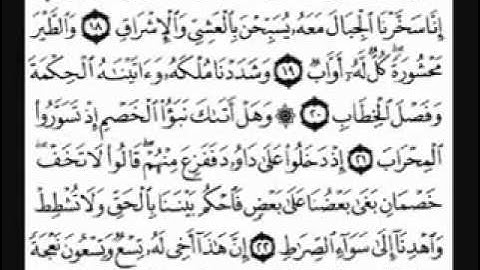 إِنَّا سَخَّرْنَا الْجِبَالَ مَعَهُۥ يُسَبِّحْنَ بِالْعَشِيِّ وَالْإِشْرَاقِ ١٨ وَالطَّيْرَ
مَحْشُورَةً ۖ كُلٌّ لَّهُۥٓ أَوَّابٌ ١٩ وَشَدَدْنَا مُلْكَهُۥ وَءَاتَيْنَٰهُ الْحِكْمَةَ
وَفَصْلَ الْخِطَابِ ٢٠ ۞ وَهَلْ أَتَىٰكَ نَبَؤُا۟ الْخَصْمِ إِذْ تَسَوَّرُوا۟
الْمِحْرَابَ ٢١ إِذْ دَخَلُوا۟ عَلَىٰ دَاوُۥدَ فَفَزِعَ مِنْهُمْ ۖ قَالُوا۟ لَا تَخَفْ ۖ
خَصْمَانِ بَغَىٰ بَعْضُنَا عَلَىٰ بَعْضٍ فَاحْكُم بَيْنَنَا بِالْحَقِّ وَلَا تُشْطِطْ
وَاهْدِنَآ إِلَىٰ سَوَآءِ الصِّرَٰطِ ٢٢ إِنَّ هَٰذَآ أَخِى لَهُۥ تِسْعٌ وَتِسْعُونَ نَعْجَةً